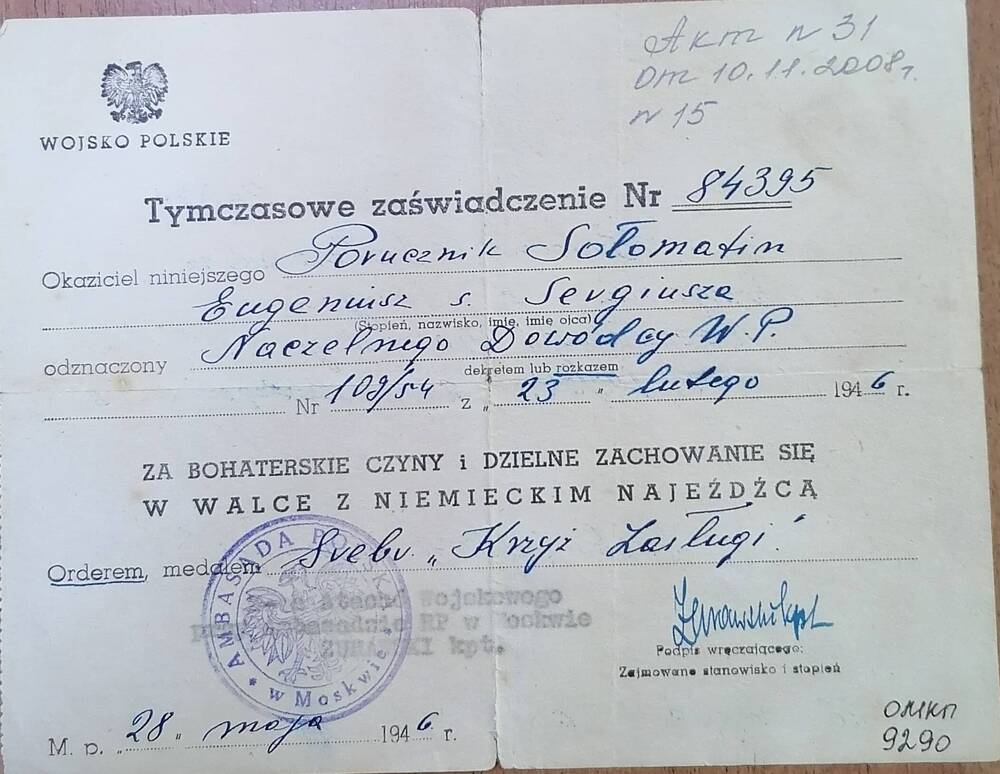 Акт № 31
От 10.11.2008г.
№ 15
WOJSKO POLSKIE
Tymczasowe zaświadczenie Nr 84395
Okaziciel niniejszego Porucznik Sołomatin
Eugeniusz s. Sergiusza
(Stopień, nazwisko, imię, imię ojca)
odznaczony Naczelnego Dowódcy W.P.
dekretem lub rozkazem
Nr 109/54 z „ 23 " lutego 1946 r.
ZA BOHATERSKIE CZYNY i DZIELNE ZACHOWANIE SIĘ
W WALCE Z NIEMIECKIM NAJEŹDŹCĄ
Orderem, medalem Srebr „Krzyż Zasługi"
AMBASADA
w Moskwie
Wojskowego
RP w Moskwie
kpt.
kpt
Podpis wręczającego:
Zajmowane stanowisko i stopień
M. p. „28" maja 1946 r.
ОМКП
9290